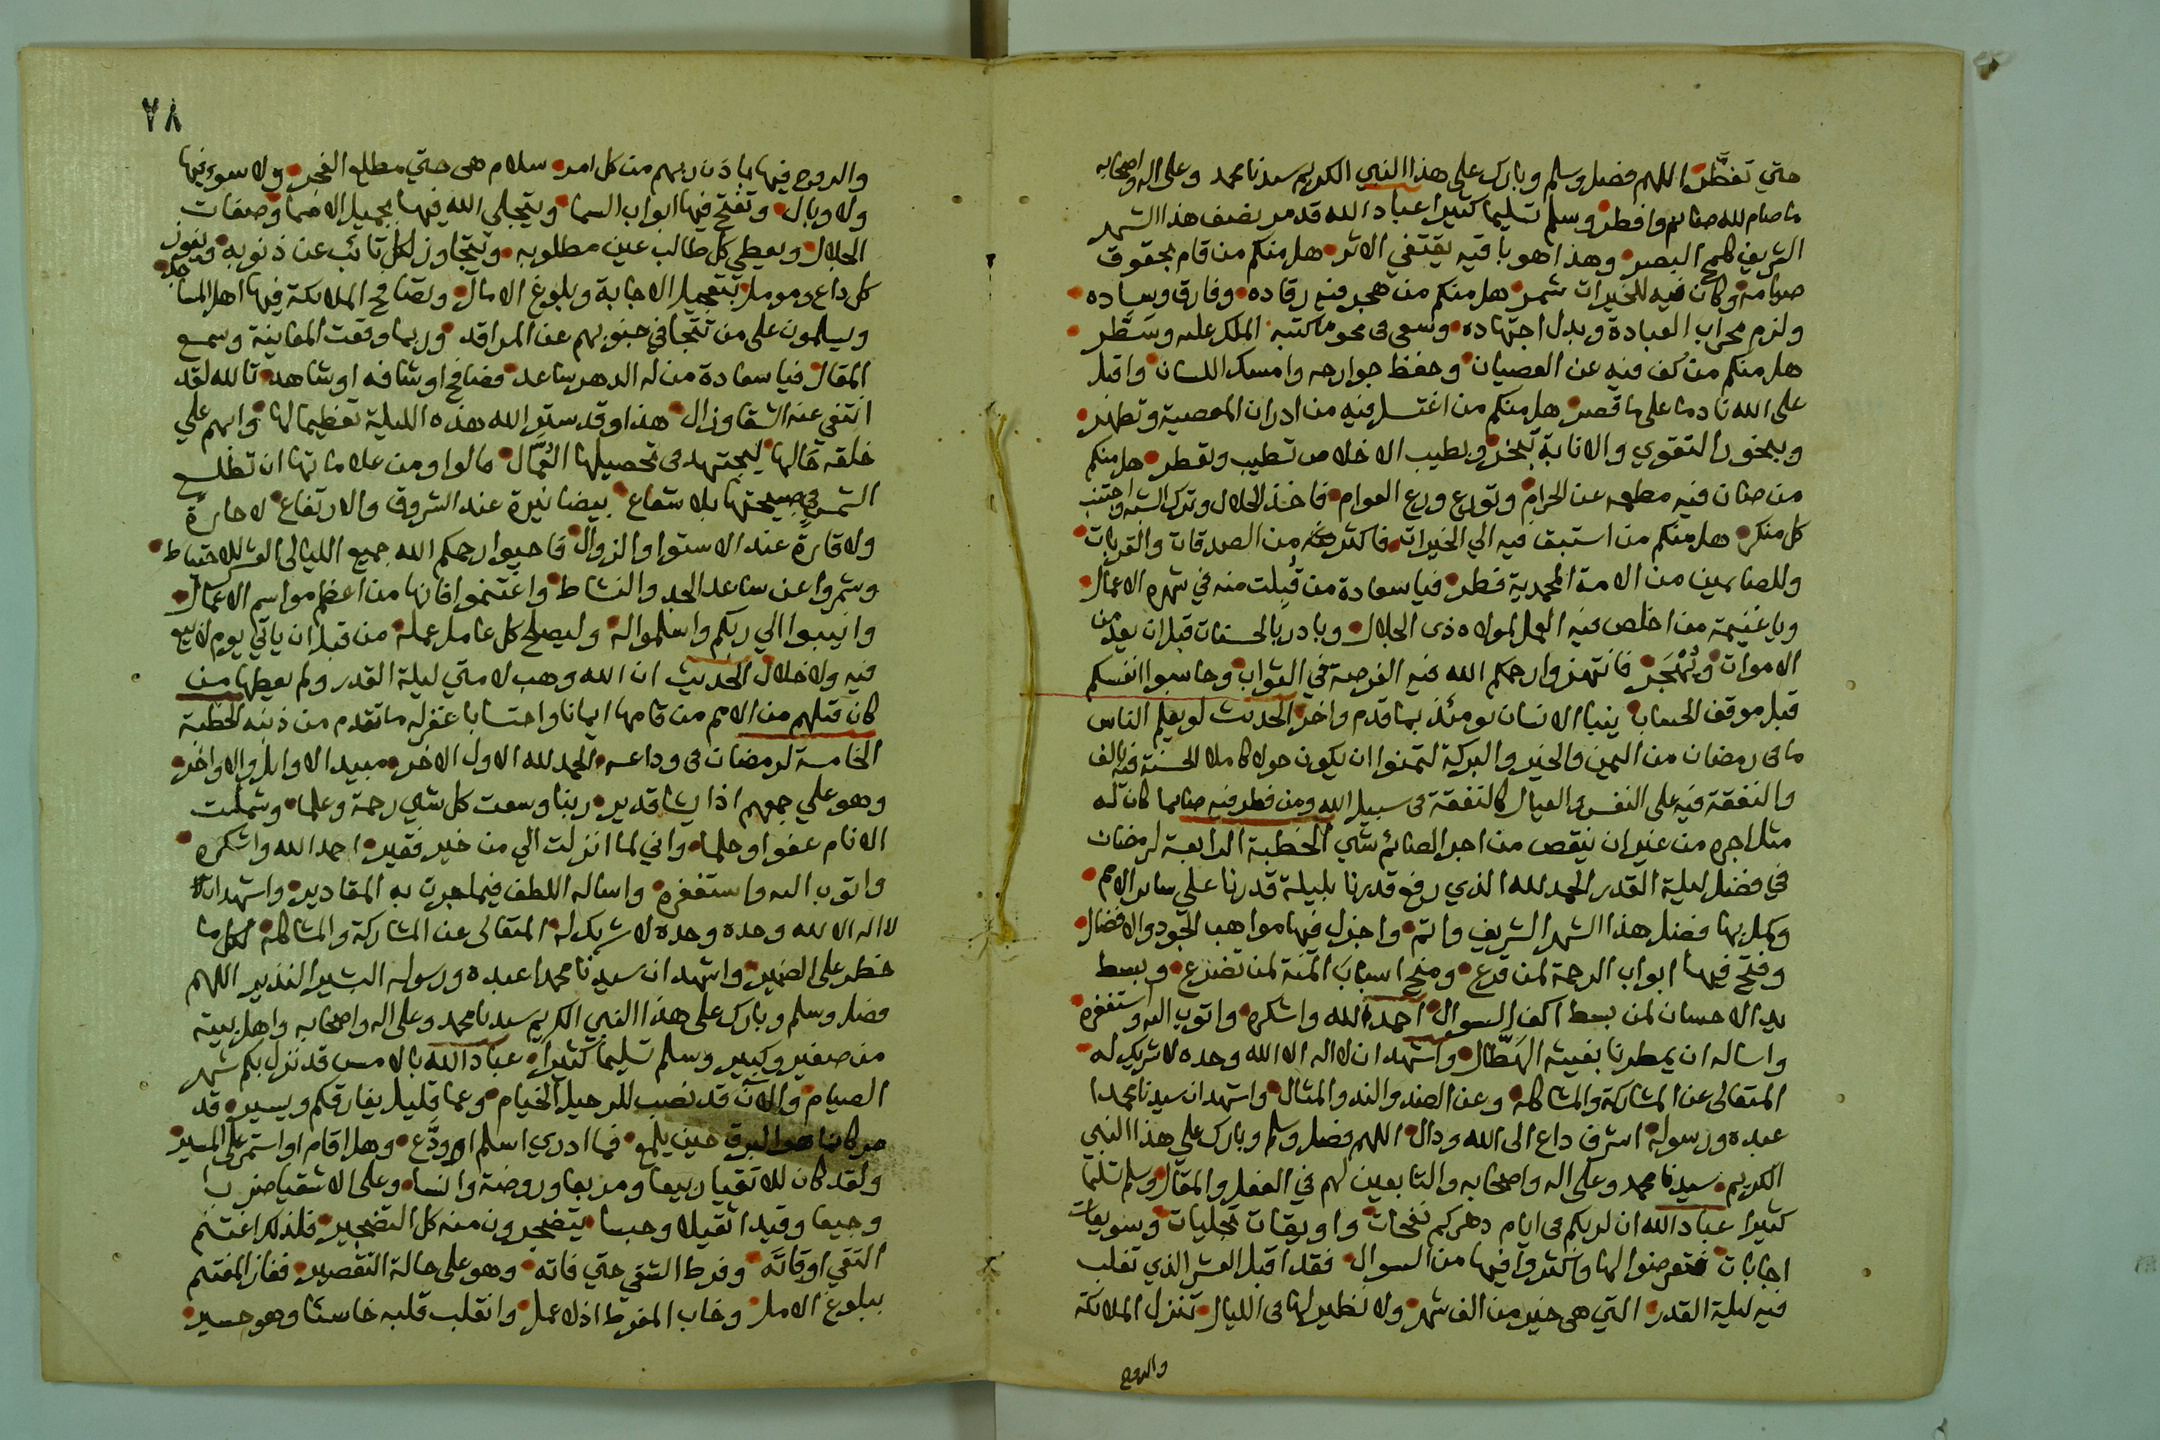 حتي تفطر اللهم فصل وسلم وبارك على هذا النبي الكريم سيدنا محمد وعلى اله واصحابه
ما صام لله صائم وافطر وسلم تسليما كثيرا عباد الله قد مر نصف هذا الشهر
الشريف كلمح البصر وهذا هو باقيه يقتفي الاثر هل منكم من قام بحقوق
صيامه وكان فيه للخيرات شمر هل منكم من هجر فيه رقاده وفارق وساده
ولزم محراب العبادة وبدل اجتهاده وسعى في محو ما كتبه الملك عليه وسطر
هل منكم من كف فيه عن العصيان وحفظ جوارحه وامسك اللسان واقبل
على الله نادما على ما قصر هل منكم من اغتسل فيه من ادران المعصية وتطهر
وببخور التقوي والانابة تبخر وبطيب الاخلاص تطيب وتعطر هل منكم
من صان فيه مطعمه عن الحرام وتورع ورع العوام فاخذ الحلال وترك الشبه واجتنب
كل منكر هل منكم من استبق فيه الي الخيرات فاكثر من الصدقات والقربات
وللصايمين من الامة المحمدية فطر فيا سعادة من قبلت منه في شهره الاعمال
ويا غنيمة من اخلص فيه العمل لمولاه ذى الجلال وبادر بالحسنات قبل ان يعد من
الاموات ويهجر فانتهزوا رحمكم الله فيه الفرصة في الثواب وحاسبوا انفسكم
قبل موقف الحساب ينبا الانسان يومئذ بما قدم واخر الحديث لو يعلم الناس
ما فى رمضان من اليمن والخير والبركة لتمنوا ان يكون حولا كاملا الحسنة فيه بالف
والنفقة فيه على النفس والعيال كالنفقة فى سبيل الله ومن فطر فيه صايما كان له
مثل اجره من غير ان ينقص من اجر الصائم شي الخطبة الرابعة لرمضان
في فضل ليلة القدر الحمد لله الذي رفع قدرنا بليلة قدرنا علي ساير الامم
وكمل بها فضل هذا الشهر الشريف واتم واجزل فيها مواهب الجود والافضال
وفتح فيها ابواب الرحمة لمن قرع ومنح اسباب المنة لمن تضرع وبسط
يد الاحسان لمن بسط اكف السوال احمد الله واشكره واتوب اليه واستغفره
واساله ان يمطرنا بغيثه الهطال واشهد ان لا اله الا الله وحده لا شريك له
المتعالى عن المشاركة والمشاكلة وعن الضد والند والمثال واشهد ان سيدنا محمدا
عبده ورسوله اشرف داع الى الله ودال اللهم فصل وسلم وبارك علي هذا النبي
الكريم سيدنا محمد وعلى اله واصحابه والتابعين لهم في الفعل والمقال وسلم تسليما
كثيرا عباد الله ان لربكم فى ايام دهركم نفحات واويقات تجليات وسويعات
اجابات فتعرضوا لها واكثروا فيها من السوال فقد اقبل العشر الذي تغلب
فيه ليلة القدر التي هى خير من الف شهر ولا نظير لها فى الليال تنزل الملائكة
والروح
٧٨
والروح فيها باذن ربهم من كل امر سلام هى حتي مطلع الفجر ولا سوء فيها
ولا وبال وتفتح فيها ابواب السما ويتجلي الله فيها بجميل الاسما وصفات
الجلال ويعطي كل طالب عين مطلوبه ويتجاوز لكل تائب عن ذنوبه ويفوز
كل داع ومومل بتعجيل الاجابة وبلوغ الامال وتصافح الملائكة فيها اهل المساجد
ويسلمون على من تتجافي جنوبهم عن المراقد وربما وقعت المعاينة وسمع
المقال فيا سعادة من له الدهر ساعد فصافح او شافه او شاهد تالله لقد
انتفى عنه الشقا وزال هذا وقد ستر الله هذه الليلة تعظيما لها وابهم علي
خلقه حالها ليجتهد فى تحصيلها العمال قالوا ومن علاماتها ان تطلع
الشمس في صبيحتها بلا شعاع بيضا نيرة عند الشروق والارتفاع لا حارة
ولا قارة عند الاستوا والزوال فاحيوا رحمكم الله جميع الليالي العشر للاحتياط
وشمروا عن ساعد الجد والنشاط واغتنموا فانها من اعظم مواسم الاعمال
وانيبوا الي ربكم واسلموا له وليصلح كل عامل عمله من قبل ان ياتي يوم لا بيع
فيه ولا خلال الحديث ان الله وهب لامتي ليلة القدر ولم يعطها من
كان قبلهم من الامم من قامها ايمانا واحتسابا غفر له ما تقدم من ذنبه الخطبة
الخامسة لرمضان فى وداعه الحمد لله الاول الاخر مبيد الاوايل والاواخر
وهو علي جمعهم اذا يشا قدير ربنا وسعت كل شي رحمة وعلما وشملت
الانام عفوا وحلما واني لما انزلت الي من خير فقير احمد الله واشكره
واتوب اليه واستغفره واساله اللطف فيما جرت به المقادير واشهد ان
لا اله الا الله وحده وحده لا شريك له المتعالى عن المشاركة والمشاكلة لكل ما
خطر على الضمير واشهد ان سيدنا محمدا عبده ورسوله البشير النذير اللهم
فصل وسلم وبارك على هذا النبي الكريم سيدنا محمد وعلى اله واصحابه واهل بيته
من صغير وكبير وسلم تسليما كثيرا عباد الله بالامس قد نزل بكم شهر
الصيام والان قد نصب للرحيل الخيام وعما قليل يفارقكم ويسير قد
مر كانما هو البرق حين يلمع فما ادري اسلم او ودع وهل اقام او استمر على المسير
ولقد كان للاتقيا ربيعا ومربعا وروضة وانسا وعلى الاشقيا ضربا
وجيعا وقيدا ثقيلا وحبسا يتضجرون منه كل التضجير فلذلك اغتنم
التقي اوقاته وفرط الشقي حتي فاته وهو على حالة التقصير ففاز المغتنم
ببلوغ الامل وخاب المفرط اذ لا عمل وانقلب قلبه خاسئا وهو حسير